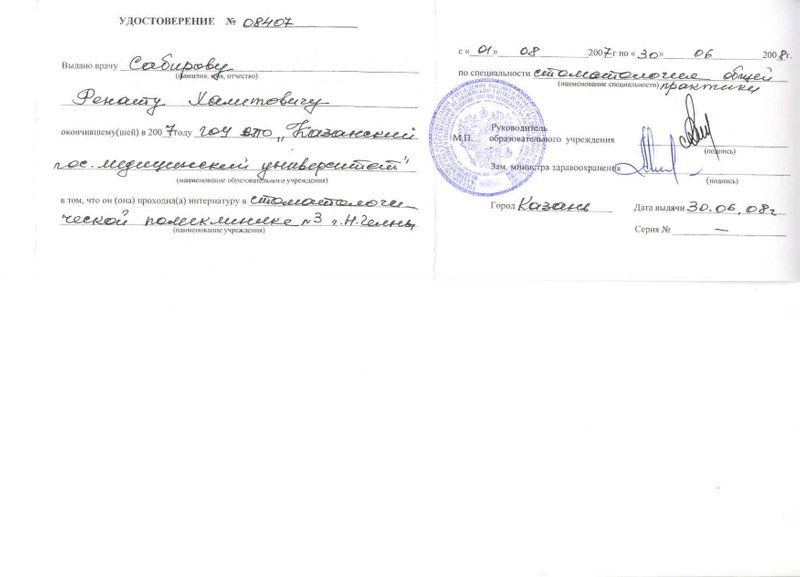 УДОСТОВЕРЕНИЕ № 08407
Выдано врачу Сабирову
(фамилия, имя, отчество)
Ренату Хамитовичу
окончившему(шей) в 2007 году ГОУ ВПО „Казанский
гос. медицинский университет"
(наименование образовательного учреждения)
в том, что он (она) проходил(а) интернатуру в стоматологи-
ческой поликлинике №3 г. Н. Челны
(наименование учреждения)
с «01» 08 2007 г по «30» 06 2008 г.
по специальности стоматология общей
(наименование специальности) практики
Руководитель
М.П. образовательного учреждения
(подпись)
Зам. министра здравоохранения
(подпись)
Город Казань Дата выдачи 30.06.08г
Серия № —